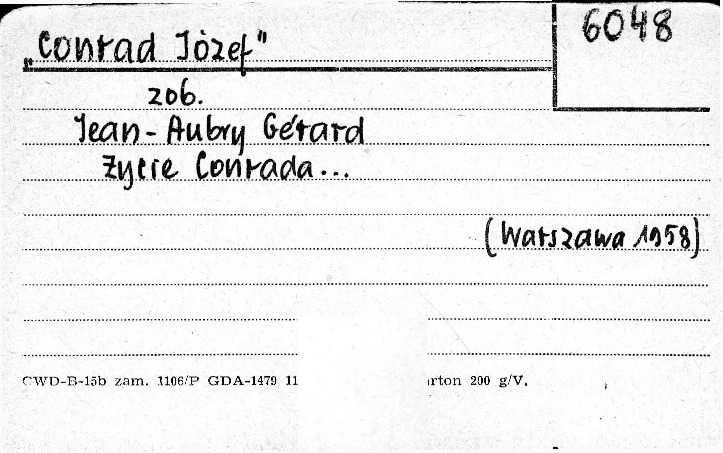 6048
„Conrad Józef"
zob.
Jean-Aubry Gérard
Życie Conrada...
(Warszawa 1958)
CWD-B-15b zam. 1106/P GDA-1479 11 rton 200 g/V.